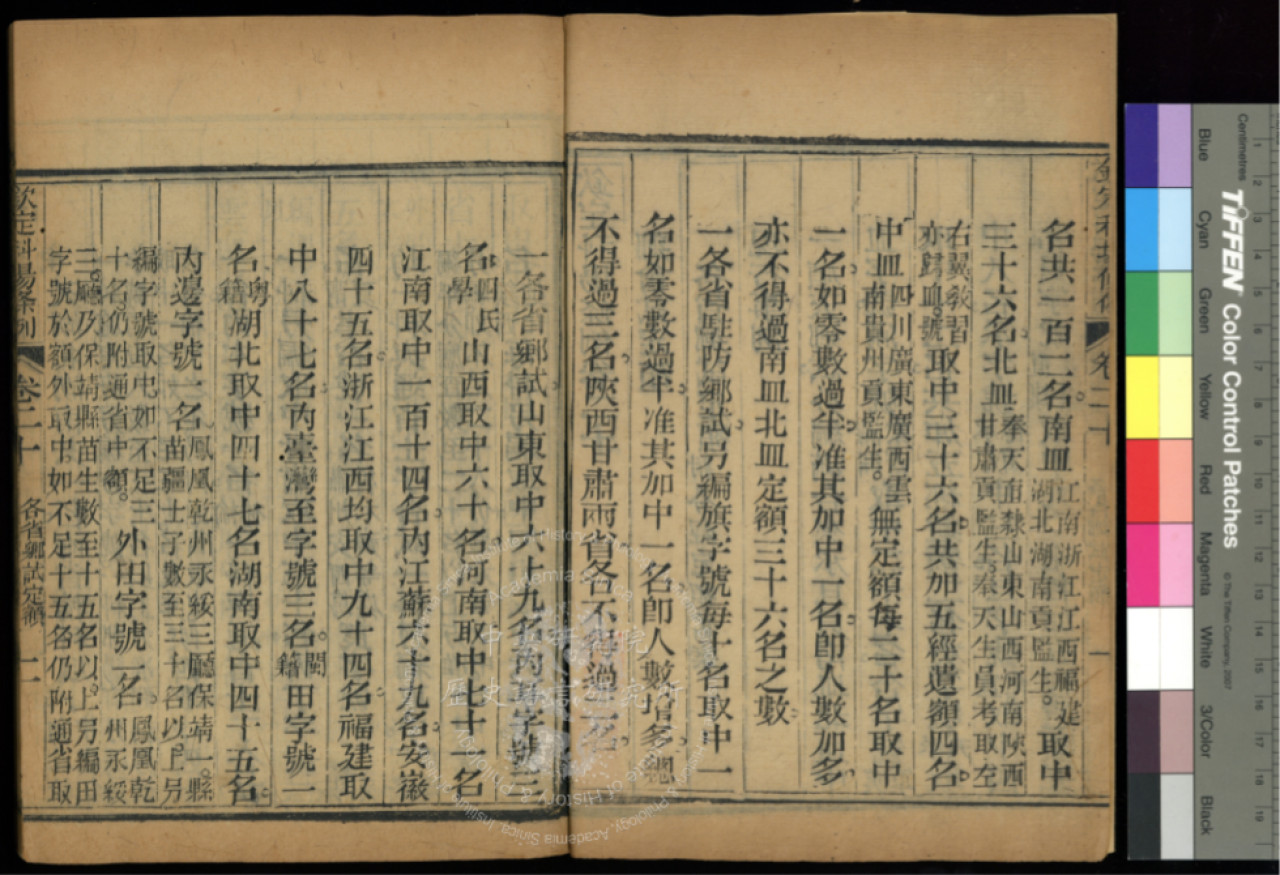 欽定科場條例 卷二十 一
名共一百二名南皿江南浙江江西福建
湖北湖南貢監生。取中
三十六名北皿奉天直隸山東山西河南陝西
甘肅貢監生奉天生員考取左
右翼教習
亦歸皿號取中三十六名共加五經遺額四名
中皿四川廣東廣西雲
南貴州貢監生。無定額每二十名取中
一名如零數過半准其加中一名卽人數加多
亦不得過南皿北皿定額三十六名之數
一各省駐防鄉試另編旗字號每十名取中一
名如零數過半准其加中一名卽人數增多總
不得過三名陝西甘肅兩省各不得過二名
一各省鄉試山東取中六十九名內耳字號三
名四氏
學山西取中六十名河南取中七十一名
江南取中一百十四名內江蘇六十九名安徽
四十五名浙江江西均取中九十四名福建取
中八十七名內臺灣至字號三名閩
籍田字號一
名粵
籍湖北取中四十七名湖南取中四十五名
內邊字號一名鳳凰乾州永綏三廳保靖一縣
苗疆士子數至三十名以上另
編字號取中如不足三
十名仍附通省中額。外田字號一名鳳凰乾
州永綏
三廳及保靖縣苗生數至十五名以上另編田
字號於額外取中如不足十五名仍附通省取
欽定科場條例 卷二十 各省鄉試定額 二
中央研究院
歷史語言研究所
Centimetres
TIFFEN Color Control Patches
© The Tiffen Company, 2007
Blue Cyan Green Yellow Red Magenta White 3/Color Black
1 2 3 4 5 6 7 8 9 10 11 12 13 14 15 16 17 18 19